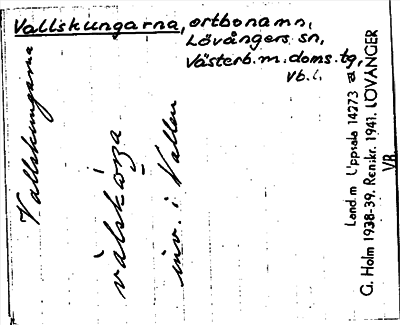 Vallskungarna, ortbonamn,
Lövångers sn,
Västerb. m. doms. tg,
Vb. l.
Vallskungarna
inv. i Vallen
Landsm Uppsala 14273
G. Holm 1938-39. Renskr. 1941. LÖVÅNGER
VB.